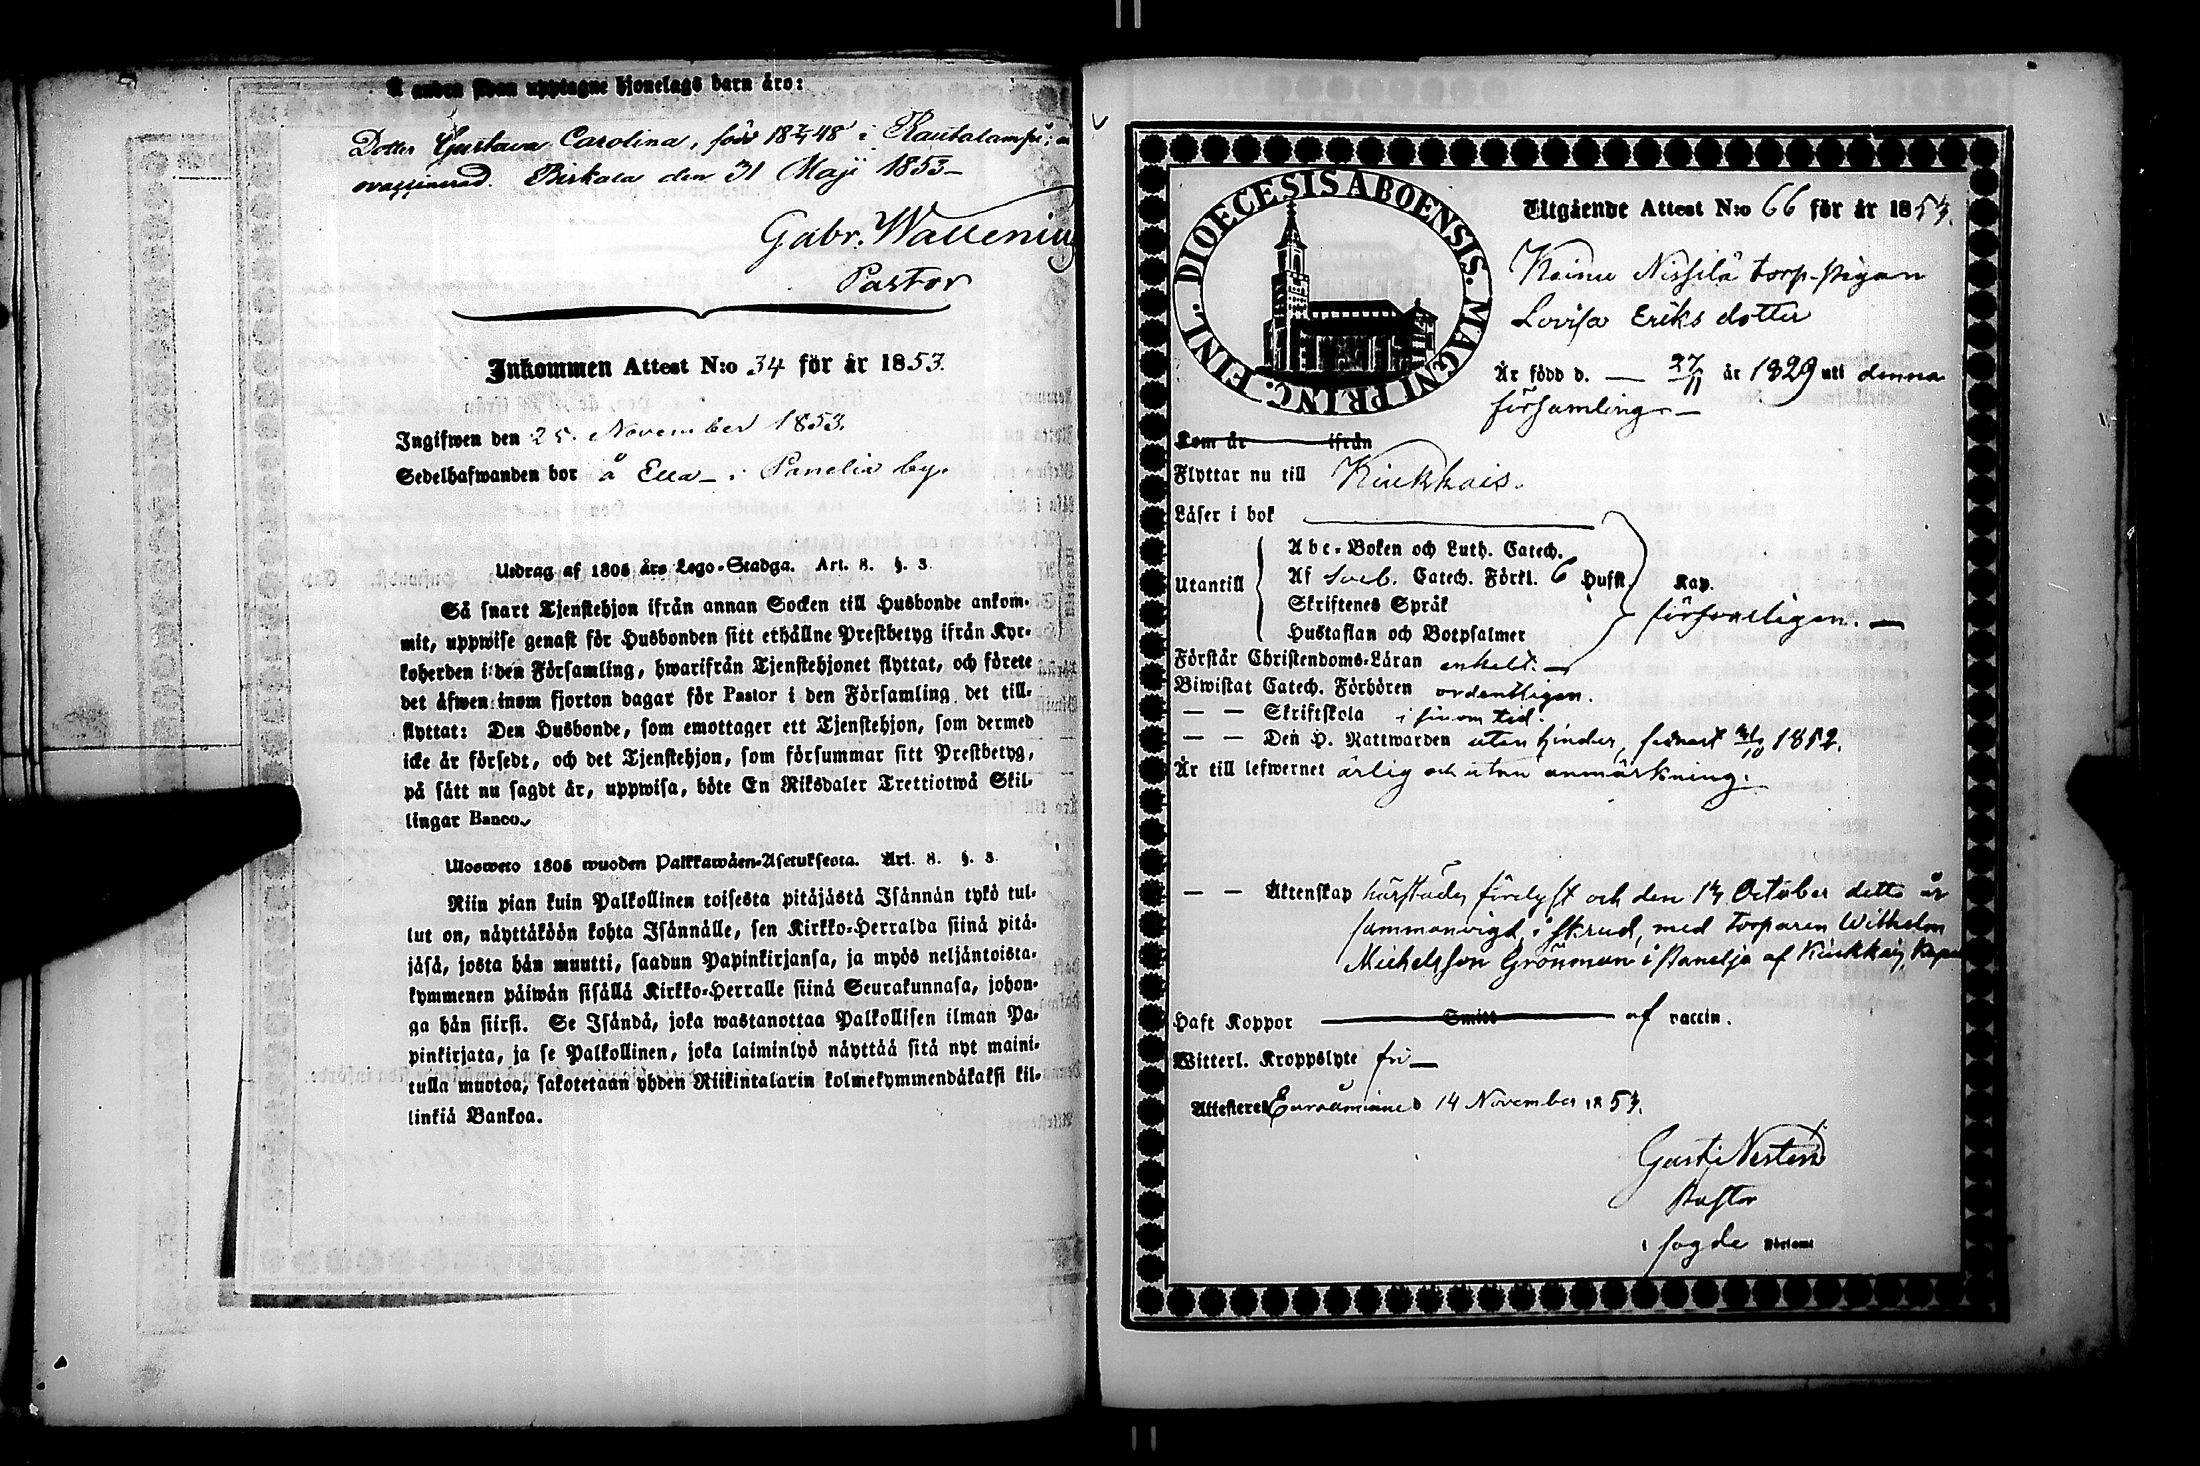 å anden sidan upptagne hjonelags barn äro:
Dotter Gustava Carolina, född 18 48 i Rautalampi;
ovaccinerad. Birkala den 31 Maji 1853
Gabr. Wallenius
Pastor
Inkommen Attest N:o 34 för år 1853.
Ingifwen den 25. November 1853.
Sedelhafwanden bor å Ella i Panelia by.
Utdrag af 1805 års Lego-Stadga. Art. 8. §. 3.
Så snart Tjenstehjon ifrån annan Socken till Husbonde ankom-
mit, uppwise genast för Husbonden sitt erhållne Prestbetyg ifrån Kyr-
koherden i den Församling, hwarifrån Tjenstehjonet flyttat, och förete
det äfwen inom fjorton dagar för Pastor i den Församling det till-
flyttat: Den Husbonde, som emottager ett Tjenstehjon, som dermed
icke är försedt, och det Tjenstehjon, som försummar sitt Prestbetyg,
på sätt nu sagdt är, uppwisa, böte En Riksdaler Trettiotwå Skil-
lingar Banco.
Ulosweto 1805 wuoden Palkkawäen-Asetuksesta. Art. 8. §. 3.
Niin pian kuin Palkollinen toisesta pitäjästä Isännän tykö tul-
lut on, näyttäköön kohta Isännälle, sen Kirkko-Herralda siinä pitä-
jäsä, josta hän muutti, saadun Papinkirjansa, ja myös neljäntoista-
kymmenen päiwän sisällä Kirkko-Herralle siinä Seurakunnasa, johon-
ga hän siirsi. Se Isändä, joka wastanottaa Palkollisen ilman Pa-
pinkirjata, ja se Palkollinen, joka laiminlyö näyttää sitä nyt maini-
tulla muotoa, sakotetaan yhden Riikintalarin kolmekymmendäkaksi kil-
linkiä Bankoa.
DIOECESIS ABOENSIS. MAGNI PRINC. FINL.
Utgående Attest N:o 66 för år 1853.
Kainu Nissilä torp-pigan
Lovisa Eriks dotter
Är född d. 27/11 år 1829 uti denna
församling
Kom år ifrån
Flyttar nu till Kiukkais.
Läser i bok
Utantill
Abc-Boken och Luth. Catech.
Af Sveb. Catech. Förkl. 6 Hufst. Kap.
Skriftenes Språk
Hustaflan och Botpsalmer
försvarligen.
Förstår Christendoms-Läran enkelt.
Biwistat Catech. Förhören ordentligen.
— — Skriftskola i sinom tid.
— — Den H. Nattwarden utan hinder, senast /10 1852.
Är till lefwernet ärlig och utan anmärkning.
— — Äktenskap härstädes förelyst och den 14 October detta år
sammanvigd, i skrud, med torparen Wilhelm
Michelsson Grönman i Panelja af Kiukkais
Haft Koppor Smitt af vaccin.
Witterl. Kroppslyte fri
Attesteres Euraåminne d 14 November 1853.
Pastor
i sagde Församl